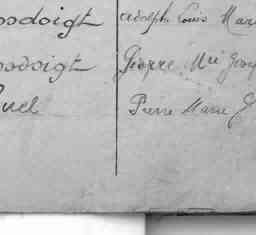 osdoigt Adolph Louis Mari
osdoigt George Mrie Georg
uel Pierre Marie G